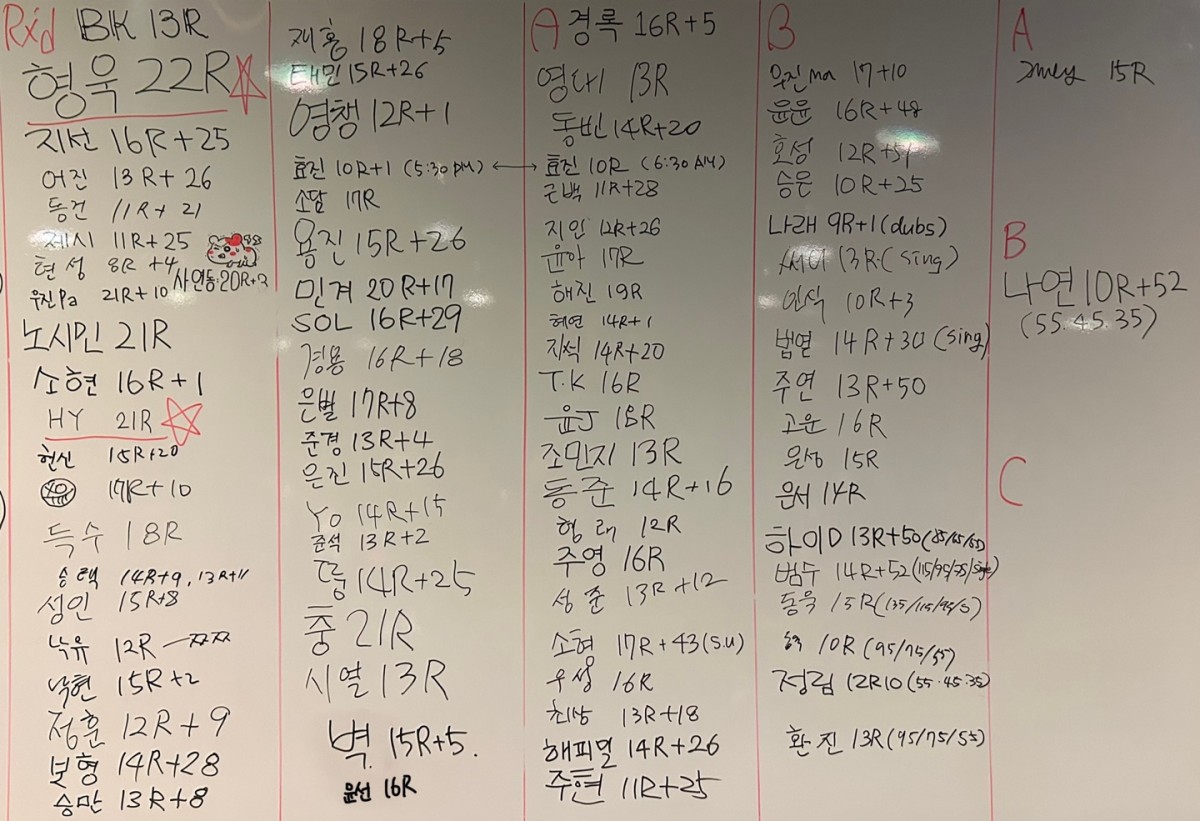 Rx'd BK 13R
형욱 22R
지선 16R+25
어진 13R+26
동건 11R+21
제시 11R+25
현성 8R+4
사인동:20R+2
우진Pa 21R+10
노시민 21R
소현 16R+1
HY 21R
현신 15R+20
17R+10
득수 18R
승택 14R+9, 13R+11
성인 15R+8
낙유 12R-짜짜
낙현 15R+2
정훈 12R+9
보형 14R+28
승만 13R+8
재홍 18R+5
태민 15R+26
영챙 12R+1
효진 10R+1 (5:30 PM)
소담 17R
용진 15R+26
민겨 20R+17
SOL 16R+29
경용 16R+18
은별 17R+8
준경 13R+4
은진 15R+26
Yo 14R+15
준석 13R+2
14R+25
중 21R
시열 13R
벽 15R+5.
윤선 16R
A 경록 16R+5
영대 13R
동빈 14R+20
효진 10R (6:30 AM)
근백 11R+28
지인 12R+26
윤아 17R
해진 19R
혜연 14R+1
지석 14R+20
T.K 16R
윤J 18R
조민지 13R
동준 14R+16
형래 12R
주영 16R
성준 13R+12
소형 17R+43(S.U)
우성 16R
최상 13R+18
해피밀 14R+26
주현 11R+25
B
우진ma 17+10
윤윤 16R+48
호성 12R+51
승은 10R+25
나래 9R+1(dubs)
써니 13R(sing)
인식 10R+3
범연 14R+30(sing)
주연 13R+50
고운 16R
은성 15R
윤서 14R
하이D 13R+50(85/65/55)
범수 14R+52(115/95/75/single)
동욱 15R(135/115/95/5)
10R(95/75/55)
정림 12R10(55.45.35)
환진 13R(95/75/55)
A
15R
B
나연 10R+52
(55.45.35)
C